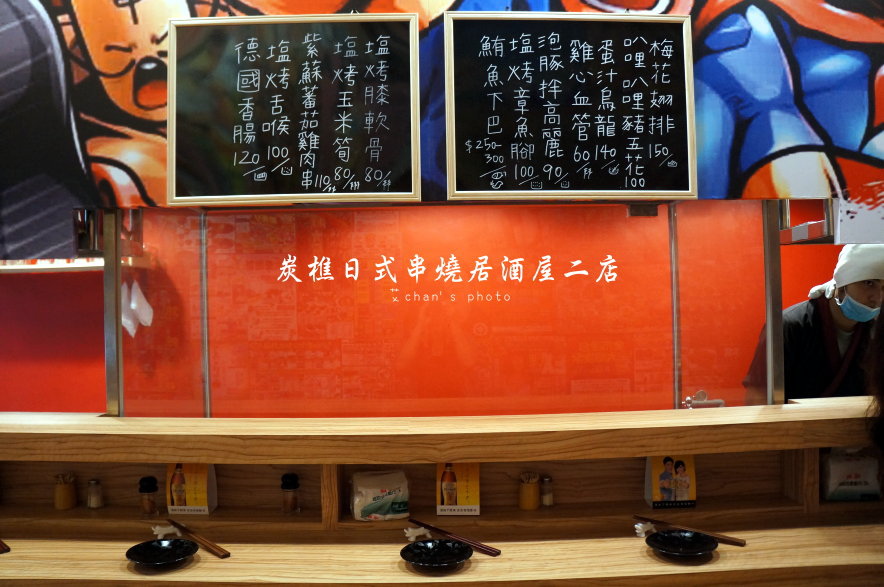 梅花翅排 150
叭哩叭哩豬五花 100
蛋汁烏龍 140
雞心血管 60
泡豚拌高麗 90
塩烤章魚腳 100
鮪魚下巴 $250-300
塩烤膝軟骨 80
塩烤玉米筍 80
紫蘇蕃茄雞肉串 110
塩烤舌喉 100
德國香腸 120
炭樵日式串燒居酒屋二店
艾chan's photo